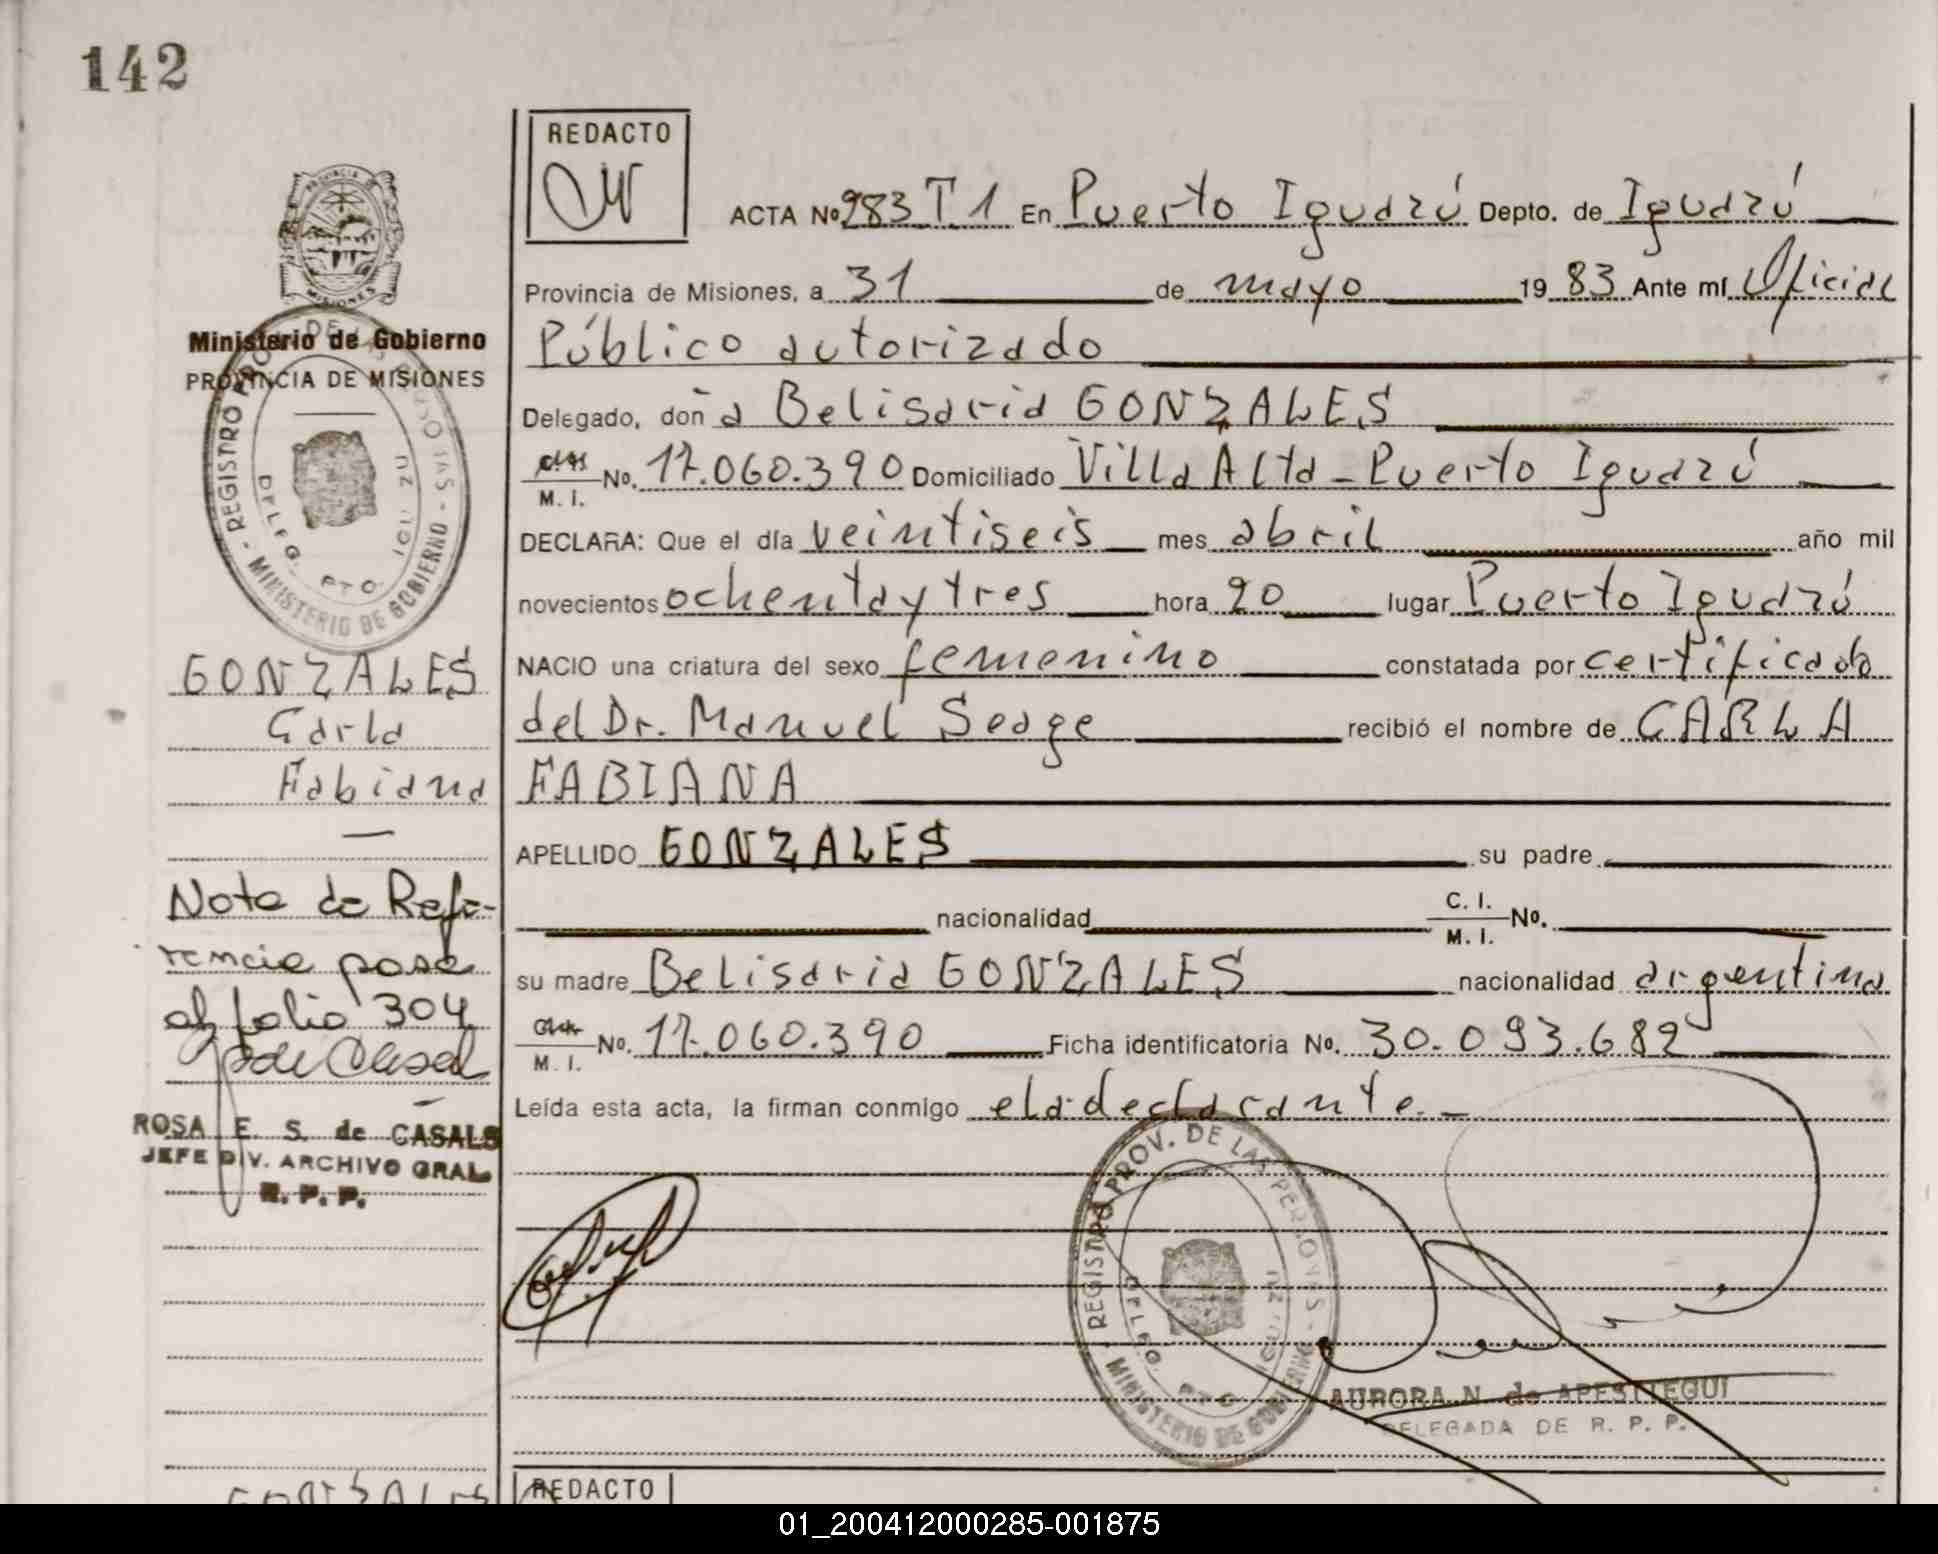 142
REDACTO
ACTA Nº 283 T.1 En Puerto Iguazú Depto. de Iguazú
Provincia de Misiones, a 31 de mayo 19 83 Ante mí Oficial
Público autorizado
Delegado, don a Belisaria GONZALES
No. 17.060.390 Domiciliado Villa Alta - Puerto Iguazú
M. I.
DECLARA: Que el día veintiseis mes abril año mil
novecientos ochenta y tres hora 20 lugar Puerto Iguazú
NACIO una criatura del sexo femenino constatada por certificado
del Dr. Manuel Seage recibió el nombre de CARLA
FABIANA
APELLIDO GONZALES su padre
nacionalidad C. I. No.
M. I.
su madre Belisaria GONZALES nacionalidad argentina
No. 17.060.390 Ficha identificatoria No. 30.093.682
M. I.
Leída esta acta, la firman conmigo la declarante.-
PROVINCIA DE MISIONES
Ministerio de Gobierno
PROVINCIA DE MISIONES
REGISTRO PROV. DE LAS PERSONAS - MINISTERIO DE GOBIERNO -
DELEG. PTO. IGUAZU
GONZALES
Carla
Fabiana
Nota de Refe-
rencia pasa
al folio 304
ROSA E. S. de CASALS
JEFE DIV. ARCHIVO GRAL.
R. P. P.
REGISTRO PROV. DE LAS PERSONAS - MINISTERIO DE GOBIERNO
DELEG. PTO. IGUAZU
AURORA N. de APESTEGUI
DELEGADA DE R. P. P.
GONZALES
REDACTO
01_200412000285-001875